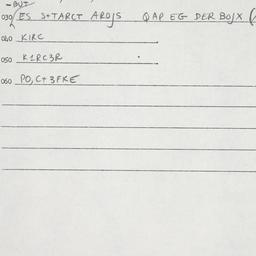 -BUT
030 ES S+TARCT AROJS QAP EG DER BOJX (
040 KIRC
050 K1RC3R
060 PO,C+3FKE